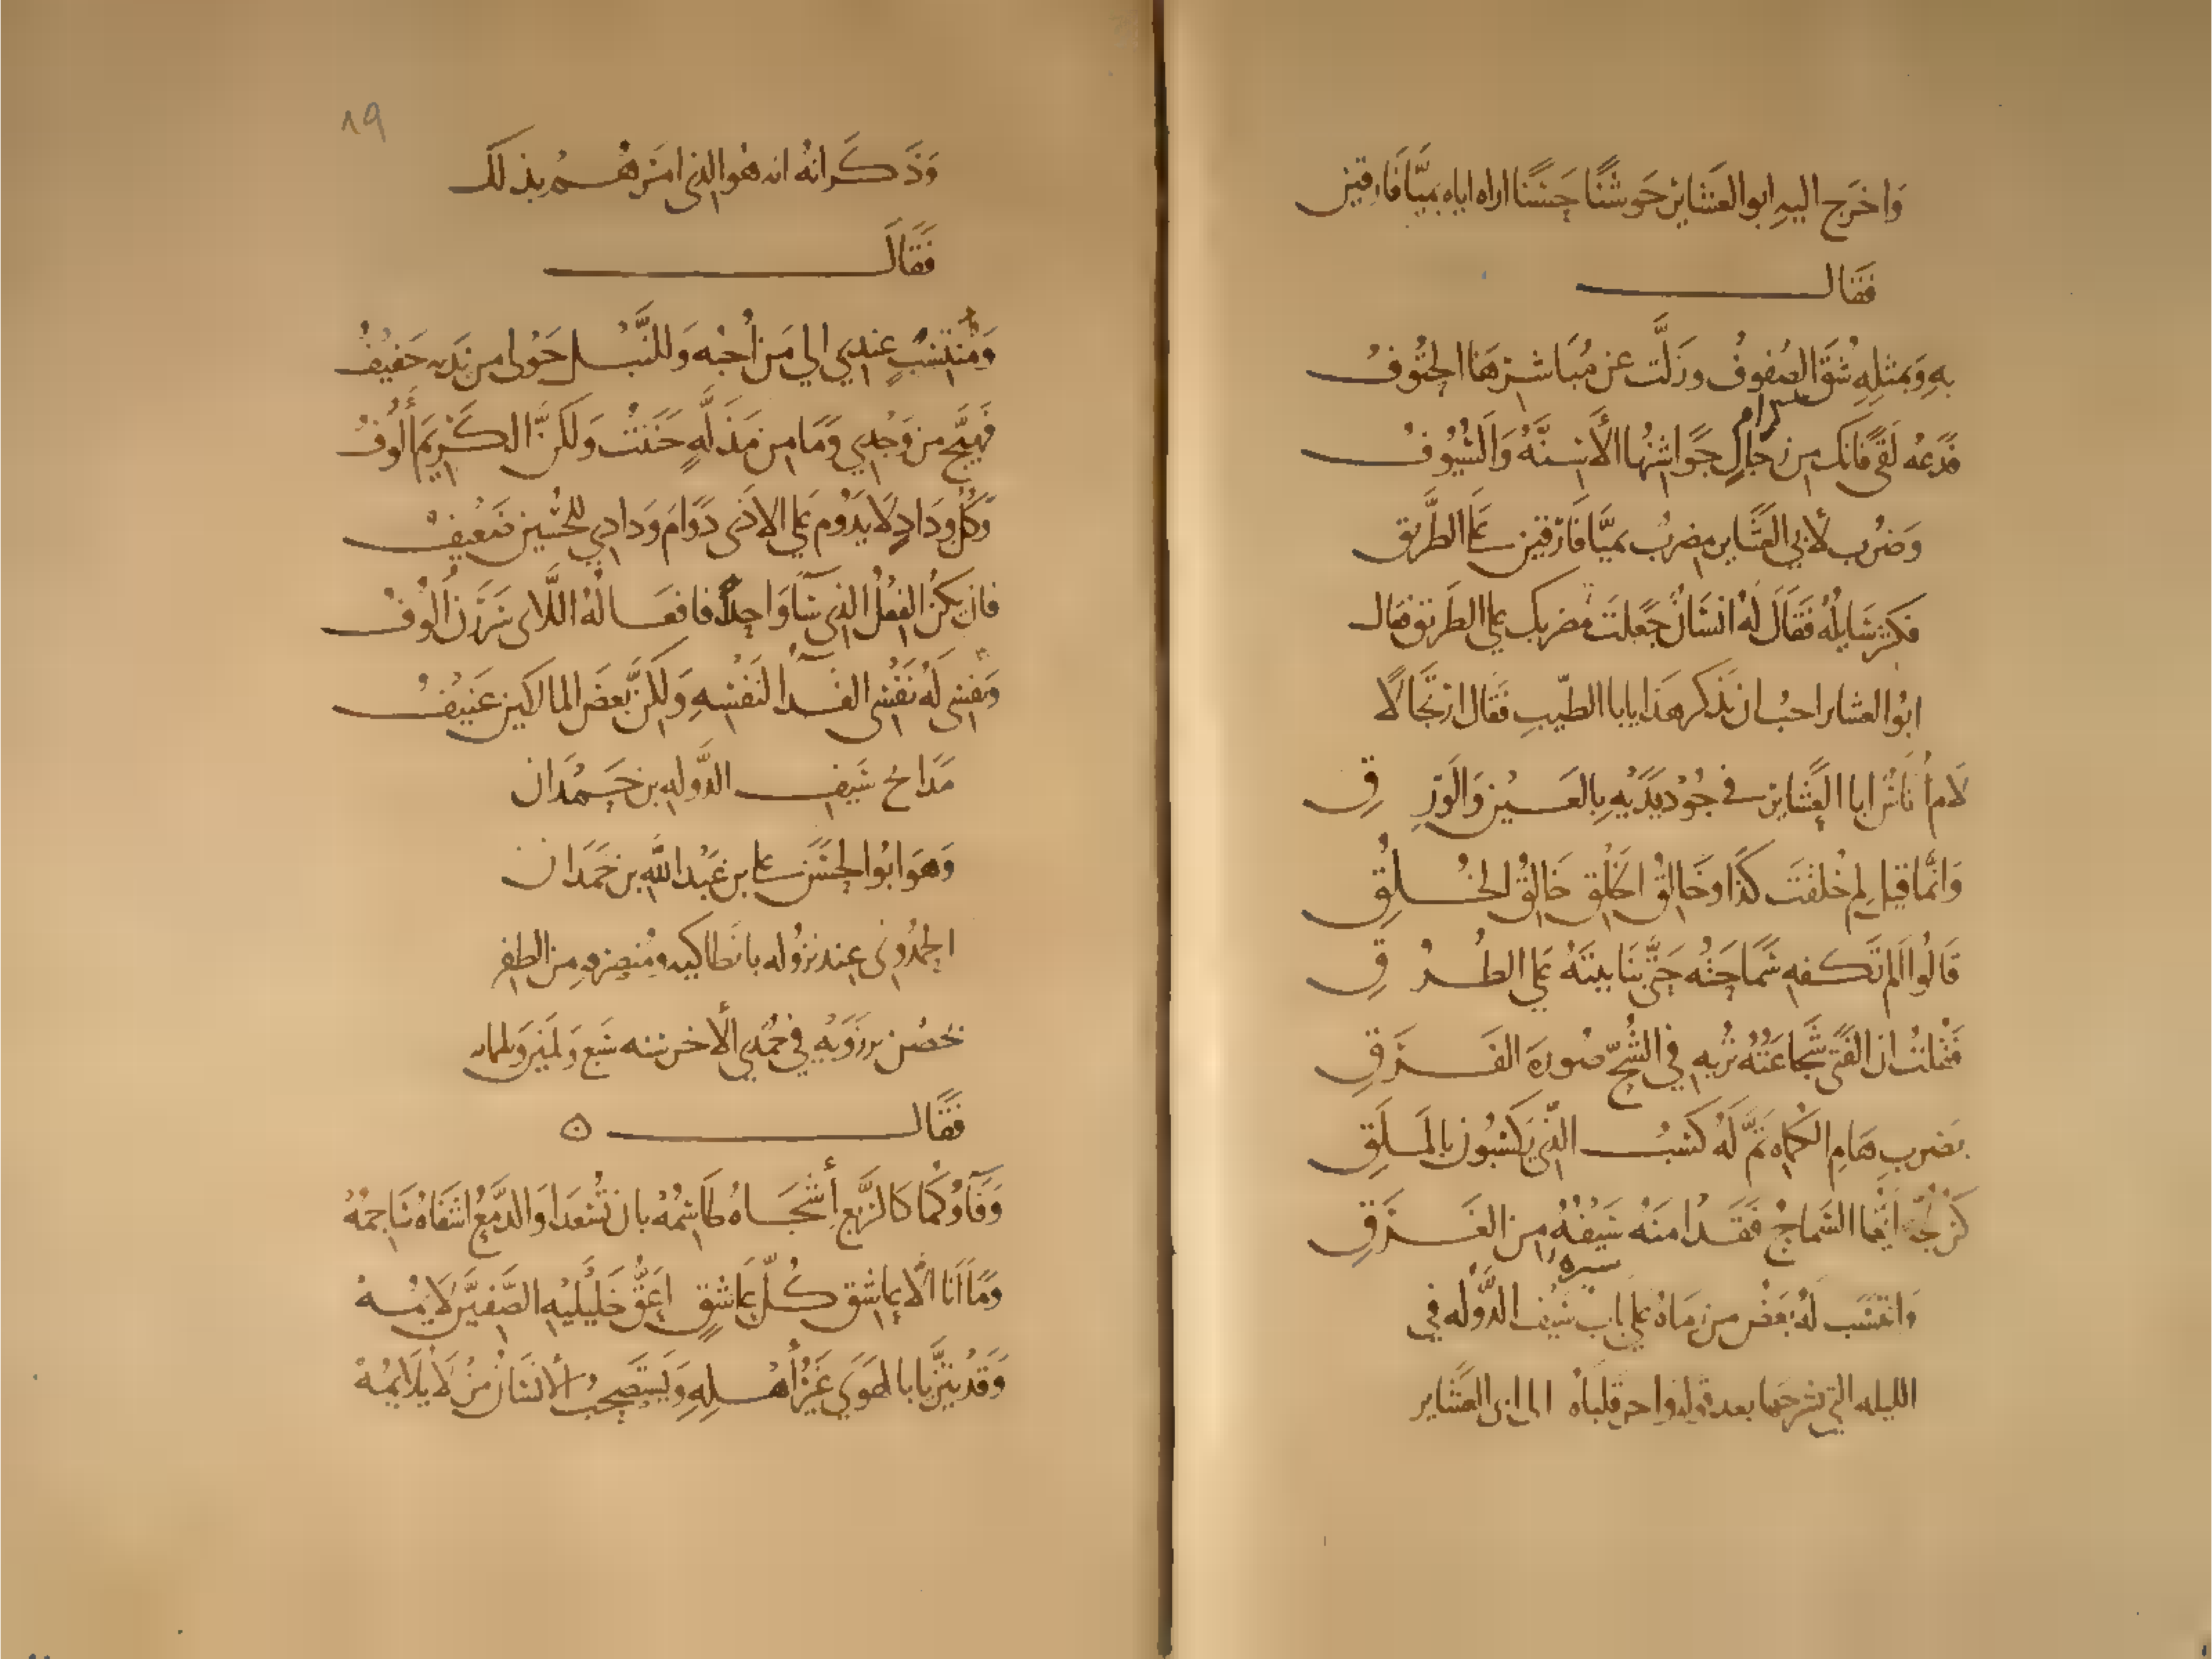 وَاخرَج اليهِ ابو العَشَايرْ جَوشَنًا حَسَنًا اراه اياه بميَّافَارقين
فَقَال
بهِ وَبمثلِهِ شُقَّ الصُفوفُ وزَلَّت عَن مُبَاشرهَا الحتُوفُ
فدَعهُ لَقىً فانك من كرام جَوَاشنُها الأَسنَّهُ وَالسُيُوفُ
وَضُرب لأبي العَشَاير مضربُ بميَّافَارْقين عَلى الطَّريق
فكثر سَايلُهُ فقَالَ لَهُ انسَانُ جَعلتَ مضربك علي الطَريق فقال
ابُو العشاير احبُ ان تَذكر هَذا يابا الطَيّبِ فقَال ارتجَالًا
لَامَ أُنَاسُ ابا العَشَايرِ في جُوْد يَدَيْهِ بالعَيْن وَالوَرِقِ
وَانَّما قيل لِم خُلقتَ كذَا وخَالقُ الخَلْق خَالِقُ الخُلُقِ
قَالُوا الَم تَكفهِ سَمَاحَتُه حَتَّى بنَا بيتَهُ عَلي الطُرُقِ
فَقُلتُ ان الفَتَى شَجَاعَتُهُ تُريهِ في الشُحّ صُورةَ الفَرَقِ
بضربِ هَامِ الكُمَاه تمَّ لَهُ كَسْبُ الذّي يَكسْبُون بالمَلَقِ
كُنْ لُجَّةً ايُّها السَمَاحُ فَقَدْ امنَهُ سَيْفُهُ منَ الغَرَقِ
وَانتسَب لَهُ بَعْضُ من رمَاهُ علي بَاب سَيْف الدَّوْله في
الليله التي شرحها بعد قوله واحر قلباه الى ابى العَشَاير
وَذَكرَ انهُ انه هُو الذى امَرهُم بذلك
فَقَالَ
وَمُنتسبٍ عنِدي الي مَن أُحبُه وَللنَّبْل حَوْلى من يَديه حَفيْفُ
فَهيَّج من وَجْدي وَمَا من مَذَلَّهٍ حَنَنتُ وَلكنَّ الكَريْمَ أَلُوفُ
وَكُلُ ودَادٍ لَا يَدُوم عَلي الاذَى دَوَامَ وَدادي للحُسَين ضَعيفُ
فان يكُن الفعْلُ الذي سَآ وَاحِدًا فافعَالُهُ اللَّائى سَرَرْنَ أُلُوْفُ
وَنفسى لَهُ نَفْسى الفدَآُ لنَفْسِهِ وَلكنَّ بَعضَ المالكين عَنيْفُ
مَدَايح سَيف الدَّولهِ بن حَمْدَان
وَهوَ ابُو الحَسَن عَلى بن عَبْد اللَّهِ بن حَمَدَان
الحمدُونى عِند نزُوله بانَطاكيه ومُنصرفهِ من الظفر
بحصْن برزَوَيْهِ في جُمْدي الأَخر سَنه سَبع وَثلثين وثلثمايه
فَقَال
وَفَآوُكُمَا كالرَّبع أَشْجَاهُ طَاسِمُهْ بان تُسْعدَا وَالدَّمعُ اشفَاهُ سَاجمُهْ
وَمَا أَنَا الَّا عَاشق كُلُّ عَاشقٍ اعَقُّ خَليْلَيْهِ الصَّفيَّين لَايمُهْ
وَقَدْ يتزَيَّا بالهَوَي غَيْرُ أَهْلِهِ وَيَسْتَصحبُ الأنسَانُ مَنْ لَا يُلَايمُهْ